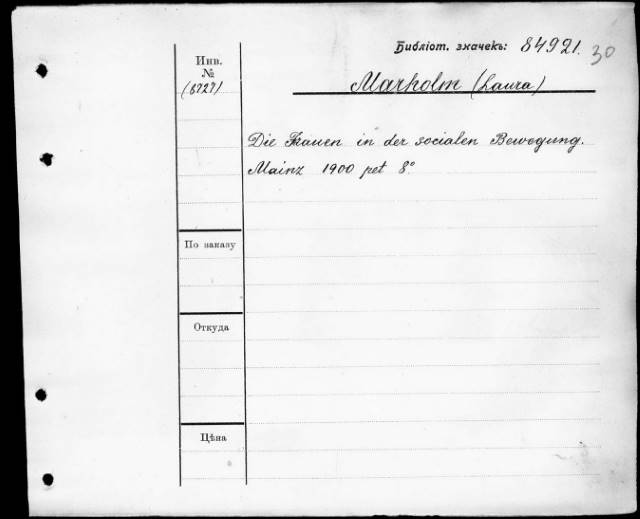 Библіот. значекъ: 84921. 30
Инв.
№
(8727)
Marholm (Laura)
Die Frauen in der socialen Bewegung.
Mainz 1900 pet 8°
По заказу
Откуда
Цѣна